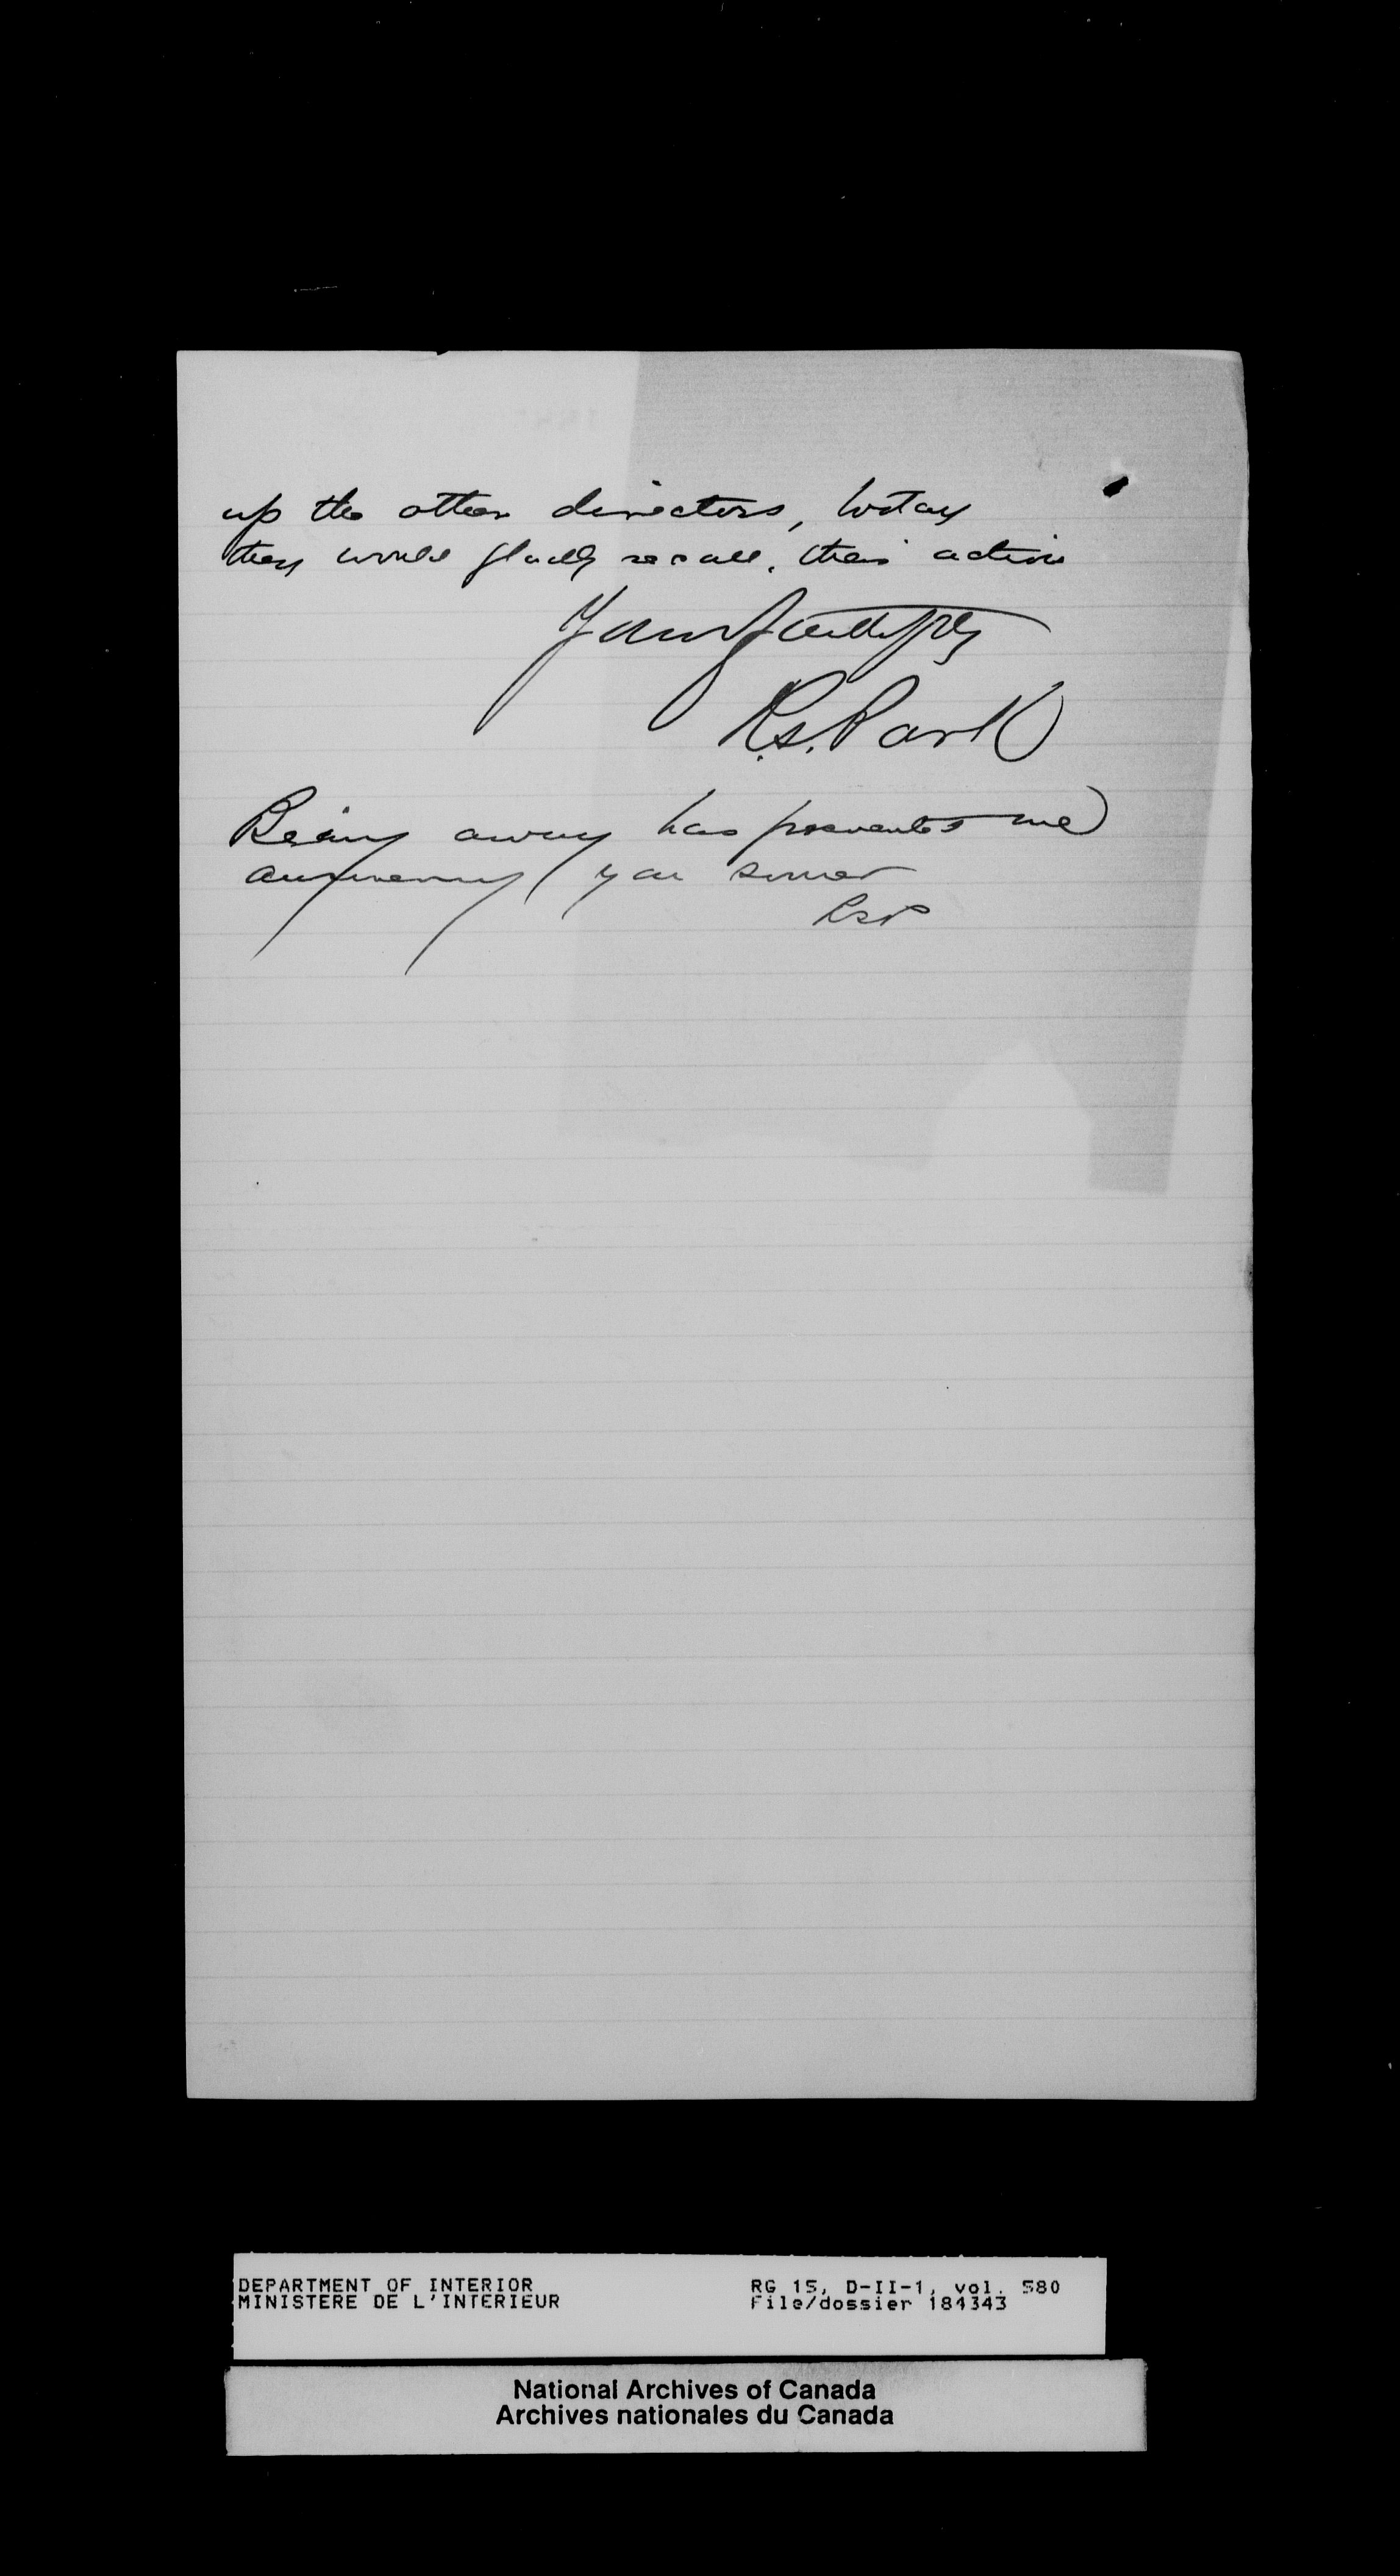 up the other directors, today
they would gladly recall, their action
Yours faithfully
R.S. Park
Being away has prevented me
answering you sooner
RSP
DEPARTMENT OF INTERIOR
MINISTERE DE L'INTERIEUR
RG 15, D-II-1, vol. 580
File/dossier 184343
National Archives of Canada
Archives nationales du Canada